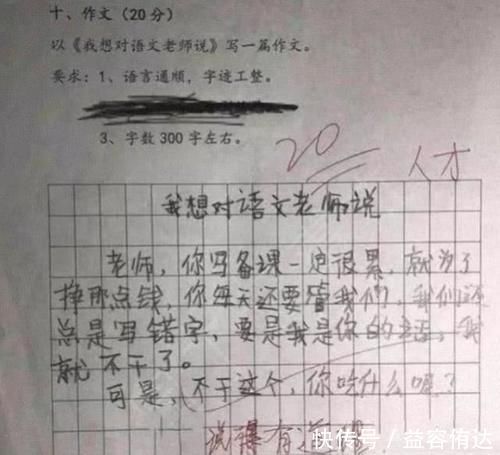 十、作文（20分）
以《我想对语文老师说》写一篇作文。
要求：1、语言通顺，字迹工整。
3、字数300字左右。
20
人才
我想对语文老师说
老师，你写备课一定很累，就为了
挣那点钱，你每天还要管我们，我们还
总是写错字，要是我是你的话，我
就不干了。
可是，不干这个，你吃什么呢？
说得有道理
快传号／益容侑达